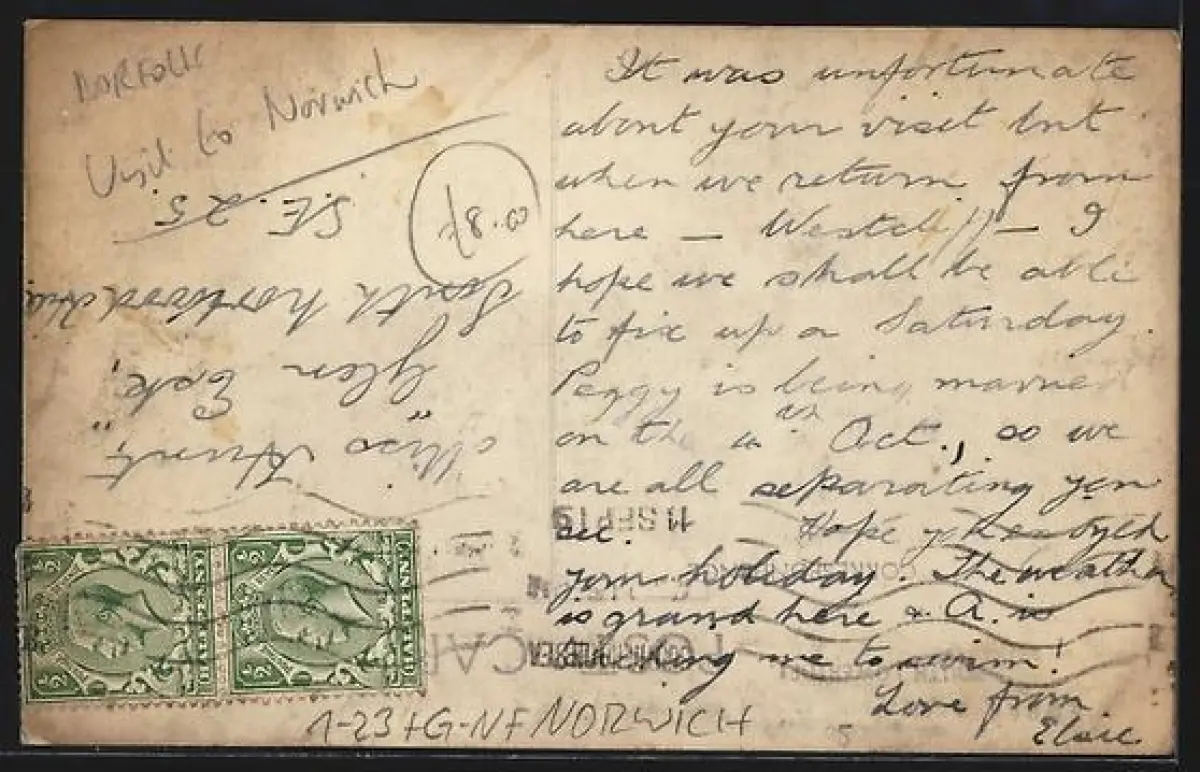 NORFOLK
Visit to Norwich
It was unfortunate
about your visit but
when we return from
here — Westcliff — I
hope we shall be able
to fix up a Saturday.
Peggy is being married
on the Oct., so we
are all separating you
see. Hope you enjoyed
your holiday. The weather
is grand here & A. is
me to swim!
Love from
Elsie
Miss Hunt,
"Glen Esk,"
South Norwood
S.E. 25.
11 SEPT
POST CARD
HALFPENNY
HALFPENNY
1-23+G-NF NORWICH